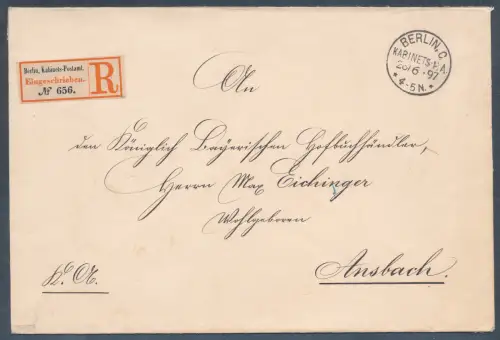 Berlin, Kabinets-Postamt.
Eingeschrieben.
№ 656.
R
BERLIN, C.
KABINETS-P.A.
26/6 97
4-5N.
An
den Königlich Bayerischen Hofbuchhändler,
Herrn Max Eichinger
Wohlgeboren
K. A.
Ansbach.